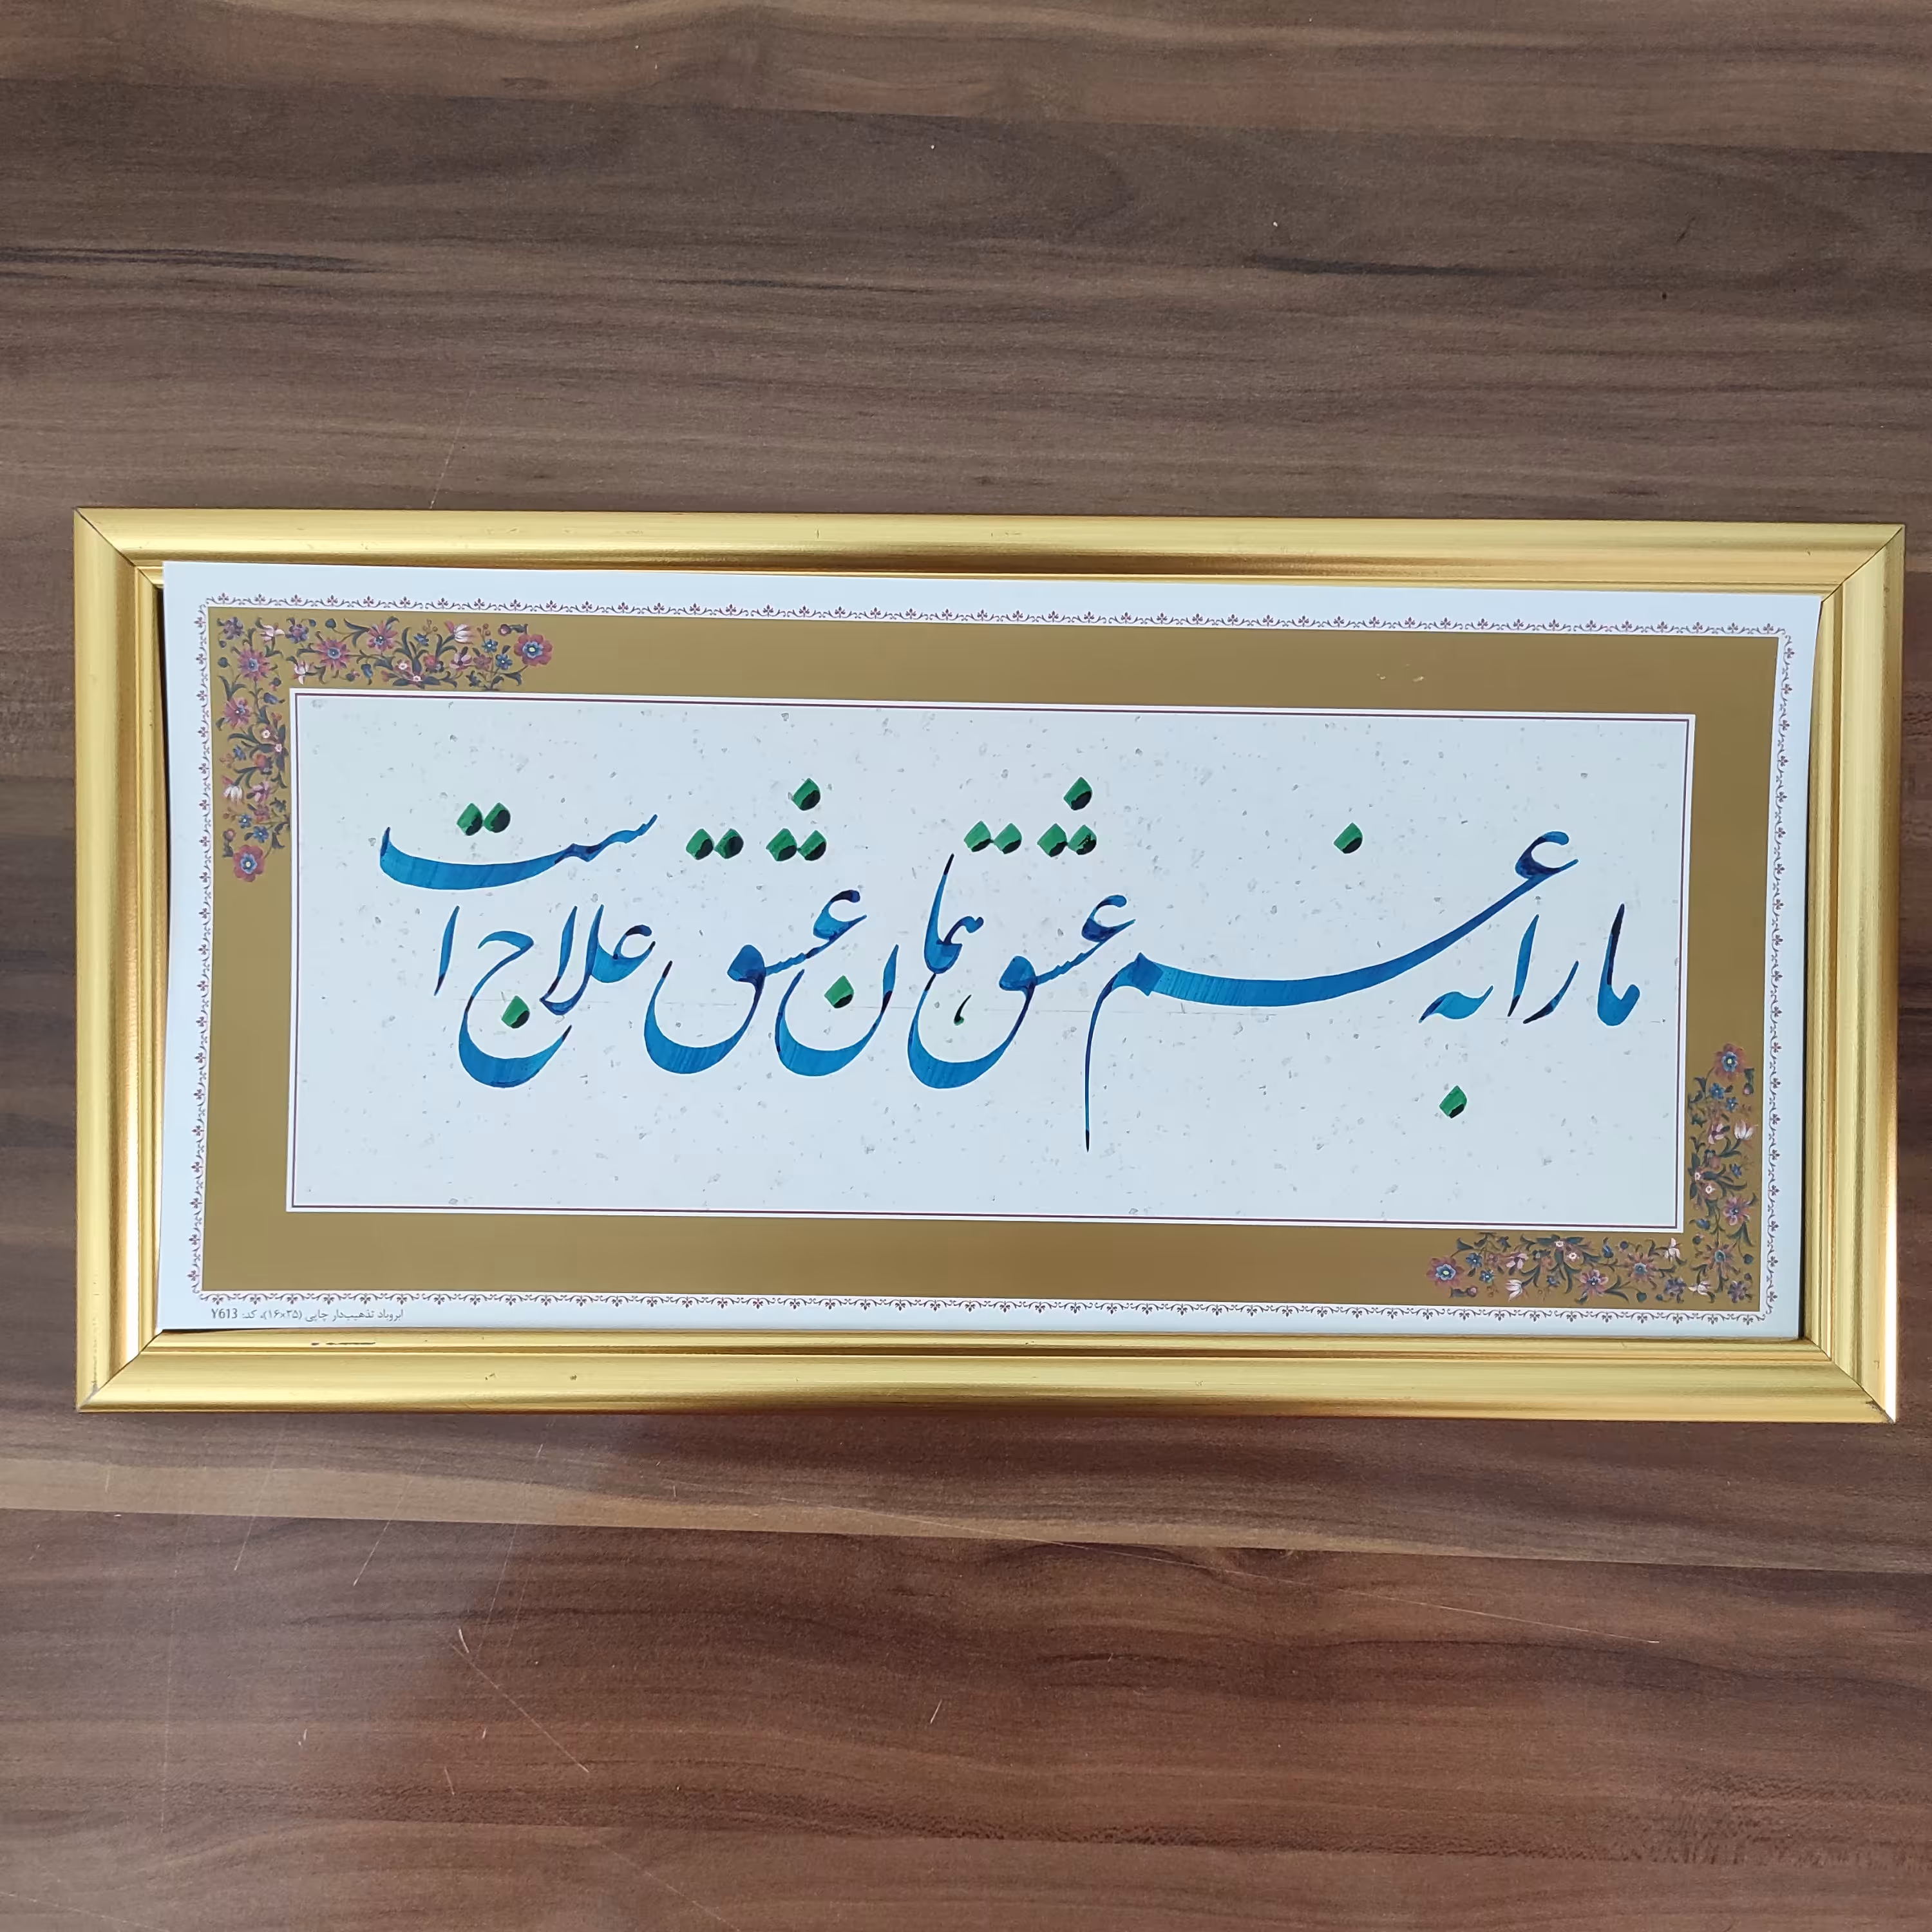 ما را به غم عشق همان عشق علاج است
ابروباد تذهیبدار چاپی (۱۶×۳۵)، کد: Y613